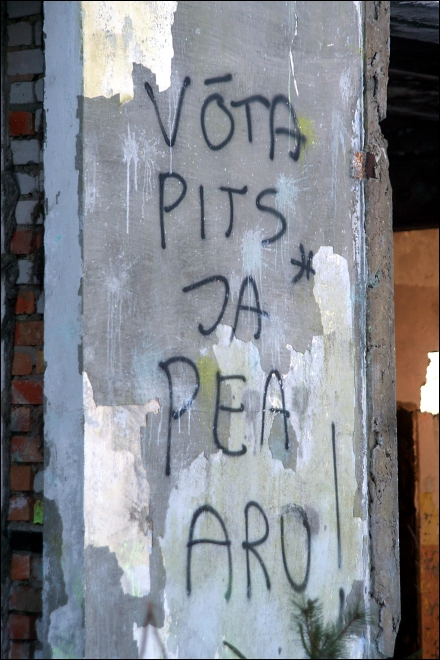 VÕTA
PITS*
JA
PEA
ARU!